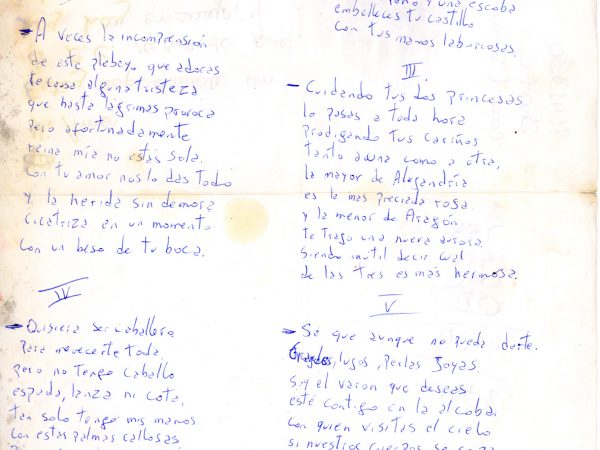 - A veces la incomprensión
de este plebeyo que adoras
te causa alguna tristeza
que hasta lágrimas provoca
pero afortunadamente
reina mia no estás sola.
Con tu amor nos lo das todo
y la herida sin demora
cicatriza en un momento
con un beso de tu boca.
y una escoba
embelleces tu castillo
con tus manos laboriosas.
III.
- Cuidando tus dos princesas
lo pasas a toda hora
prodigando tus cariños
tanto auna como a otra,
la mayor de Alejandría
es la mas preciada rosa
y la menor de Aragón
te trajo una nueva aurora
siendo inutil decir cual
de las tres es más hermosa.
IV
- Quisiera ser caballero
para merecerte toda,
pero no tengo caballo
espada, lanza ni cota,
tan solo tengo mis manos
con estas palmas callosas
V
- Se que aunque no pueda darte.
lujos, perlas joyas
soy el varon que deseas
esté contigo en la alcoba
con quien visites el cielo
si nuestros cuerpos se